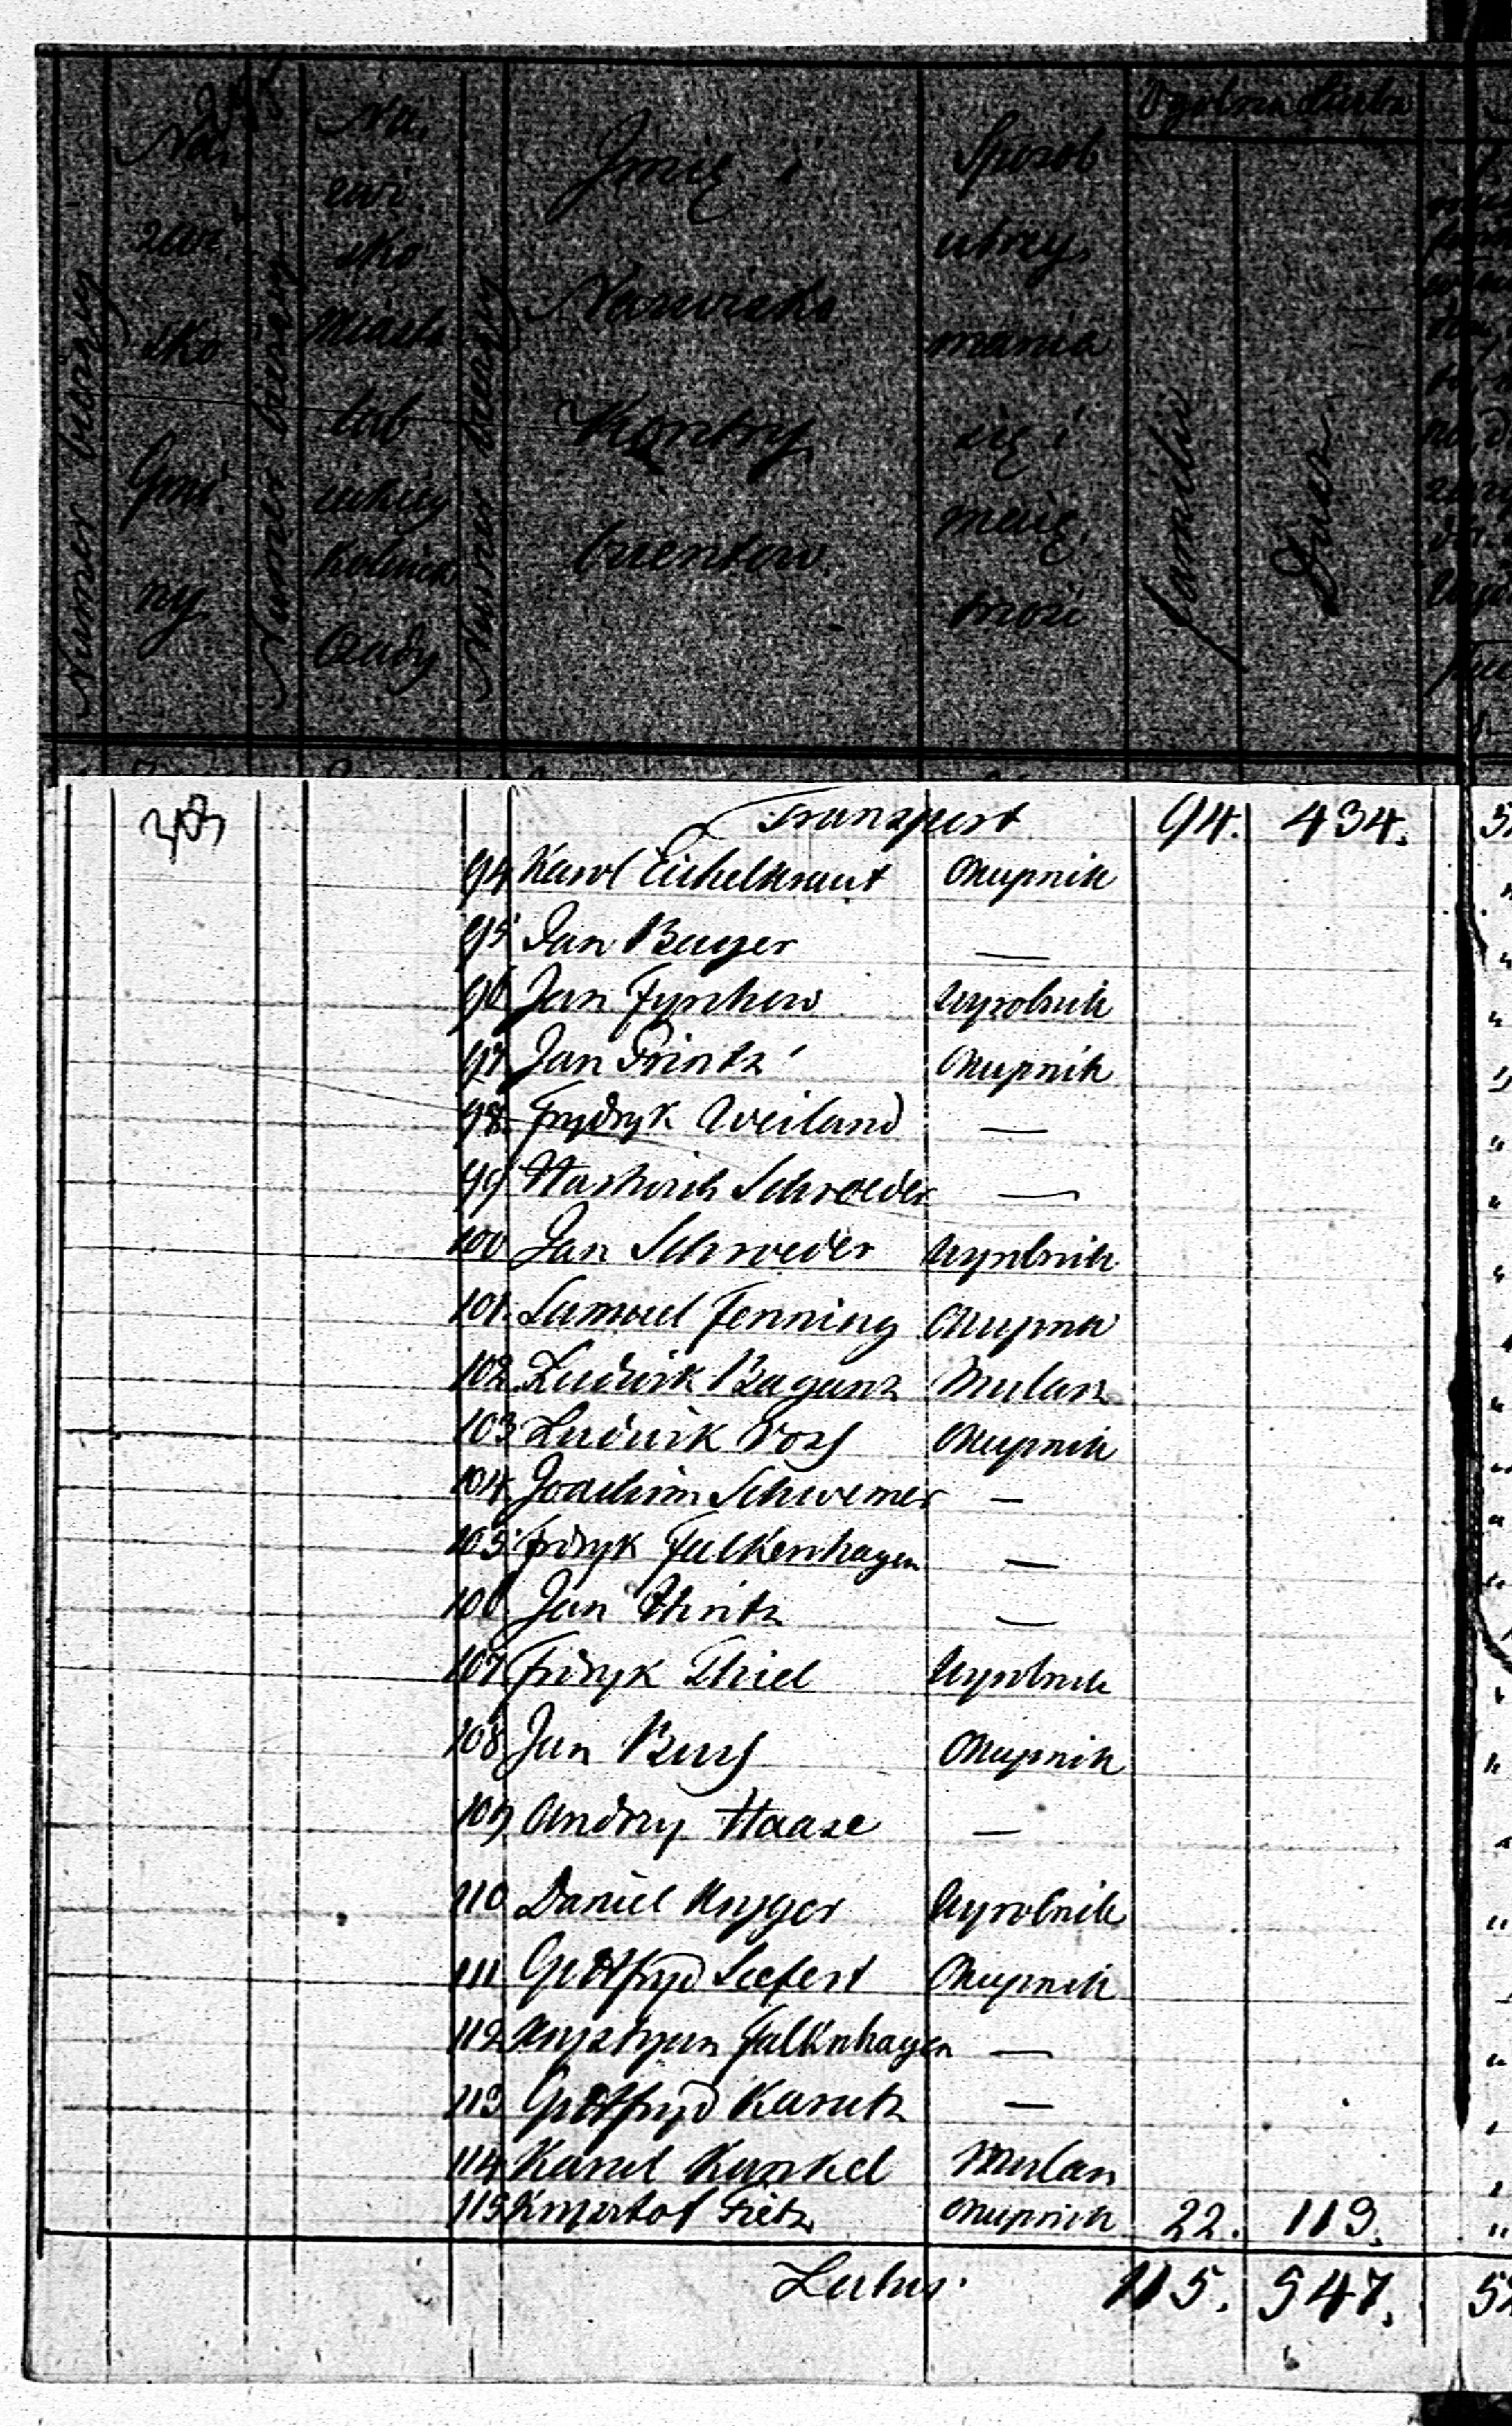 Numer bieżący
Na,
zwi,
sko
Gmi
ny
Numer bieżący
Na,
zwi,
sko
Miasta
lub
Osady
Numer bieżący
Jmię i
Nazwisko
Kontry
buentow.
Sposob
utrzy,
mania
się i
Ogolna Liczba
Familii
Dusz
Transport 94. 434.
94 Karol Eichelkraut Okupnik
95 Jan Bayer —
96 Jan Fynhow Wyrobnik
97 Jan Printz Okupnik
98. Frydryk Weiland —
99 Schroeder —
100 Jan Schroeder Wyrobnik
101. Samuel Fenning Okupnik
102. Ludwik Baganz Mularz
103 Ludwik Voss Okupnik
104. Joachim Schwemer —
105. Fridryk Falkenhagen —
106 Jan Hintz —
107. Fridryk Thiel Wyrobnik
108 Jan Buss Okupnik
109 Andrzy Haase —
110 Daniel Kryger Wyrobnik
111 Gottfryd Seefert Okupnik
112 Krystyan Falknhagen —
113 Gottfryd Karutz —
114 Karol Kunkel Mularz
115 Krysztof Fietz Okupnik 22. 113.
Latus. 115. 547.